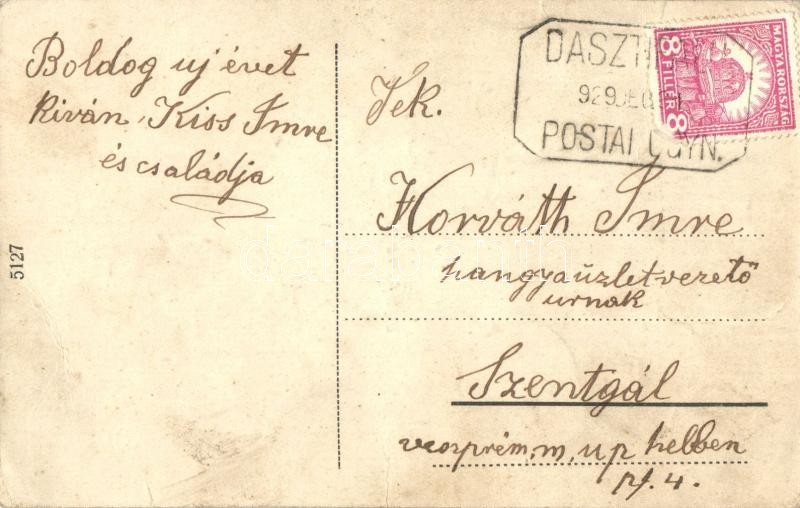 Boldog uj évet
kiván, Kiss Imre
és családja
5127
DASZT
929 DEC
POSTAI ÜGYN.
MAGYARORSZÁG
8 FILLÉR 8
Tek.
Horváth Imre
hangyaüzletvezető
urnak
Szentgál
veszprém, m, u p helben
pf. 4.